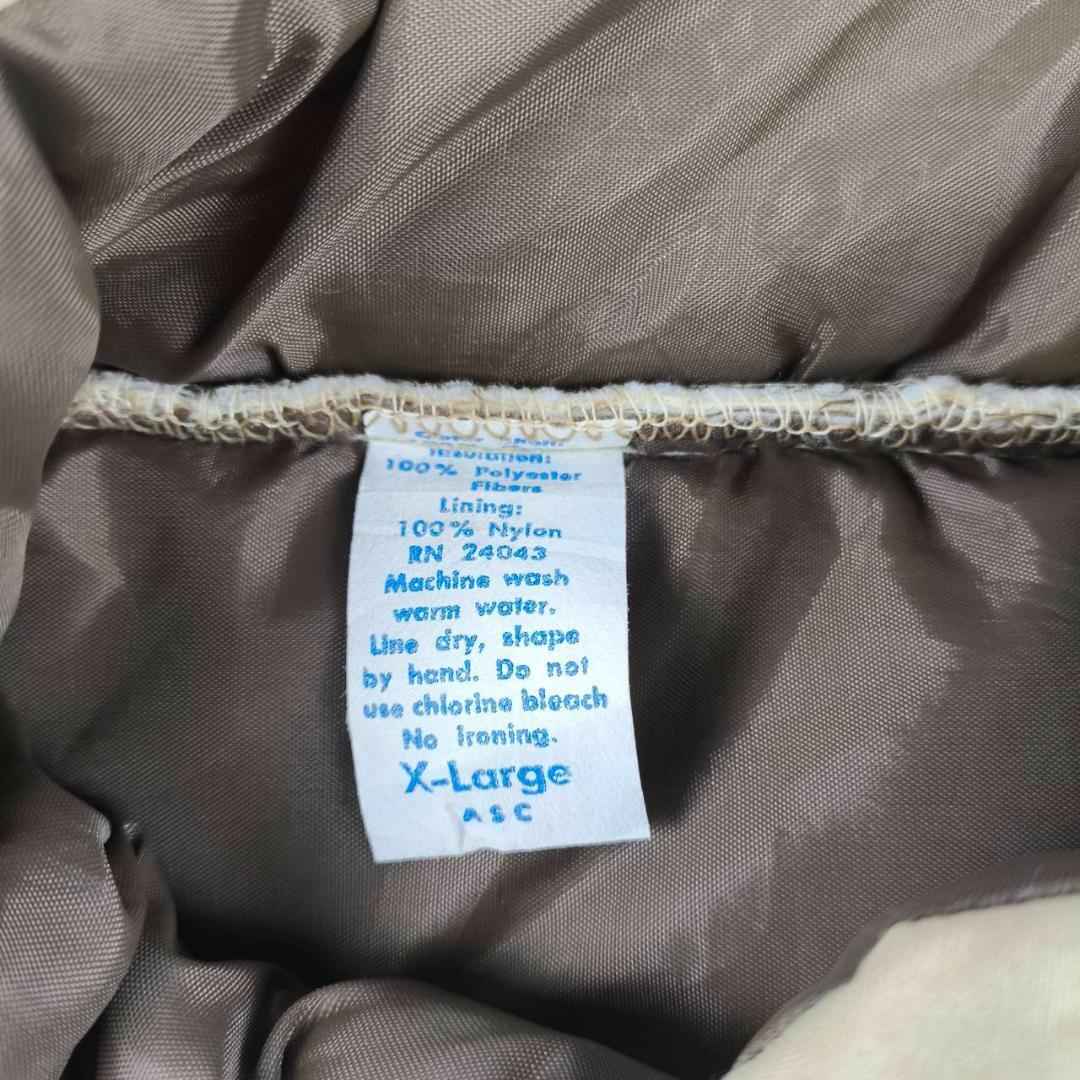 Insulation:
100% Polyester
Fibers
Lining:
100% Nylon
RN 24043
Machine wash
warm water.
Line dry, shape
by hand. Do not
use chlorine bleach
No ironing.
X-Large
ASC